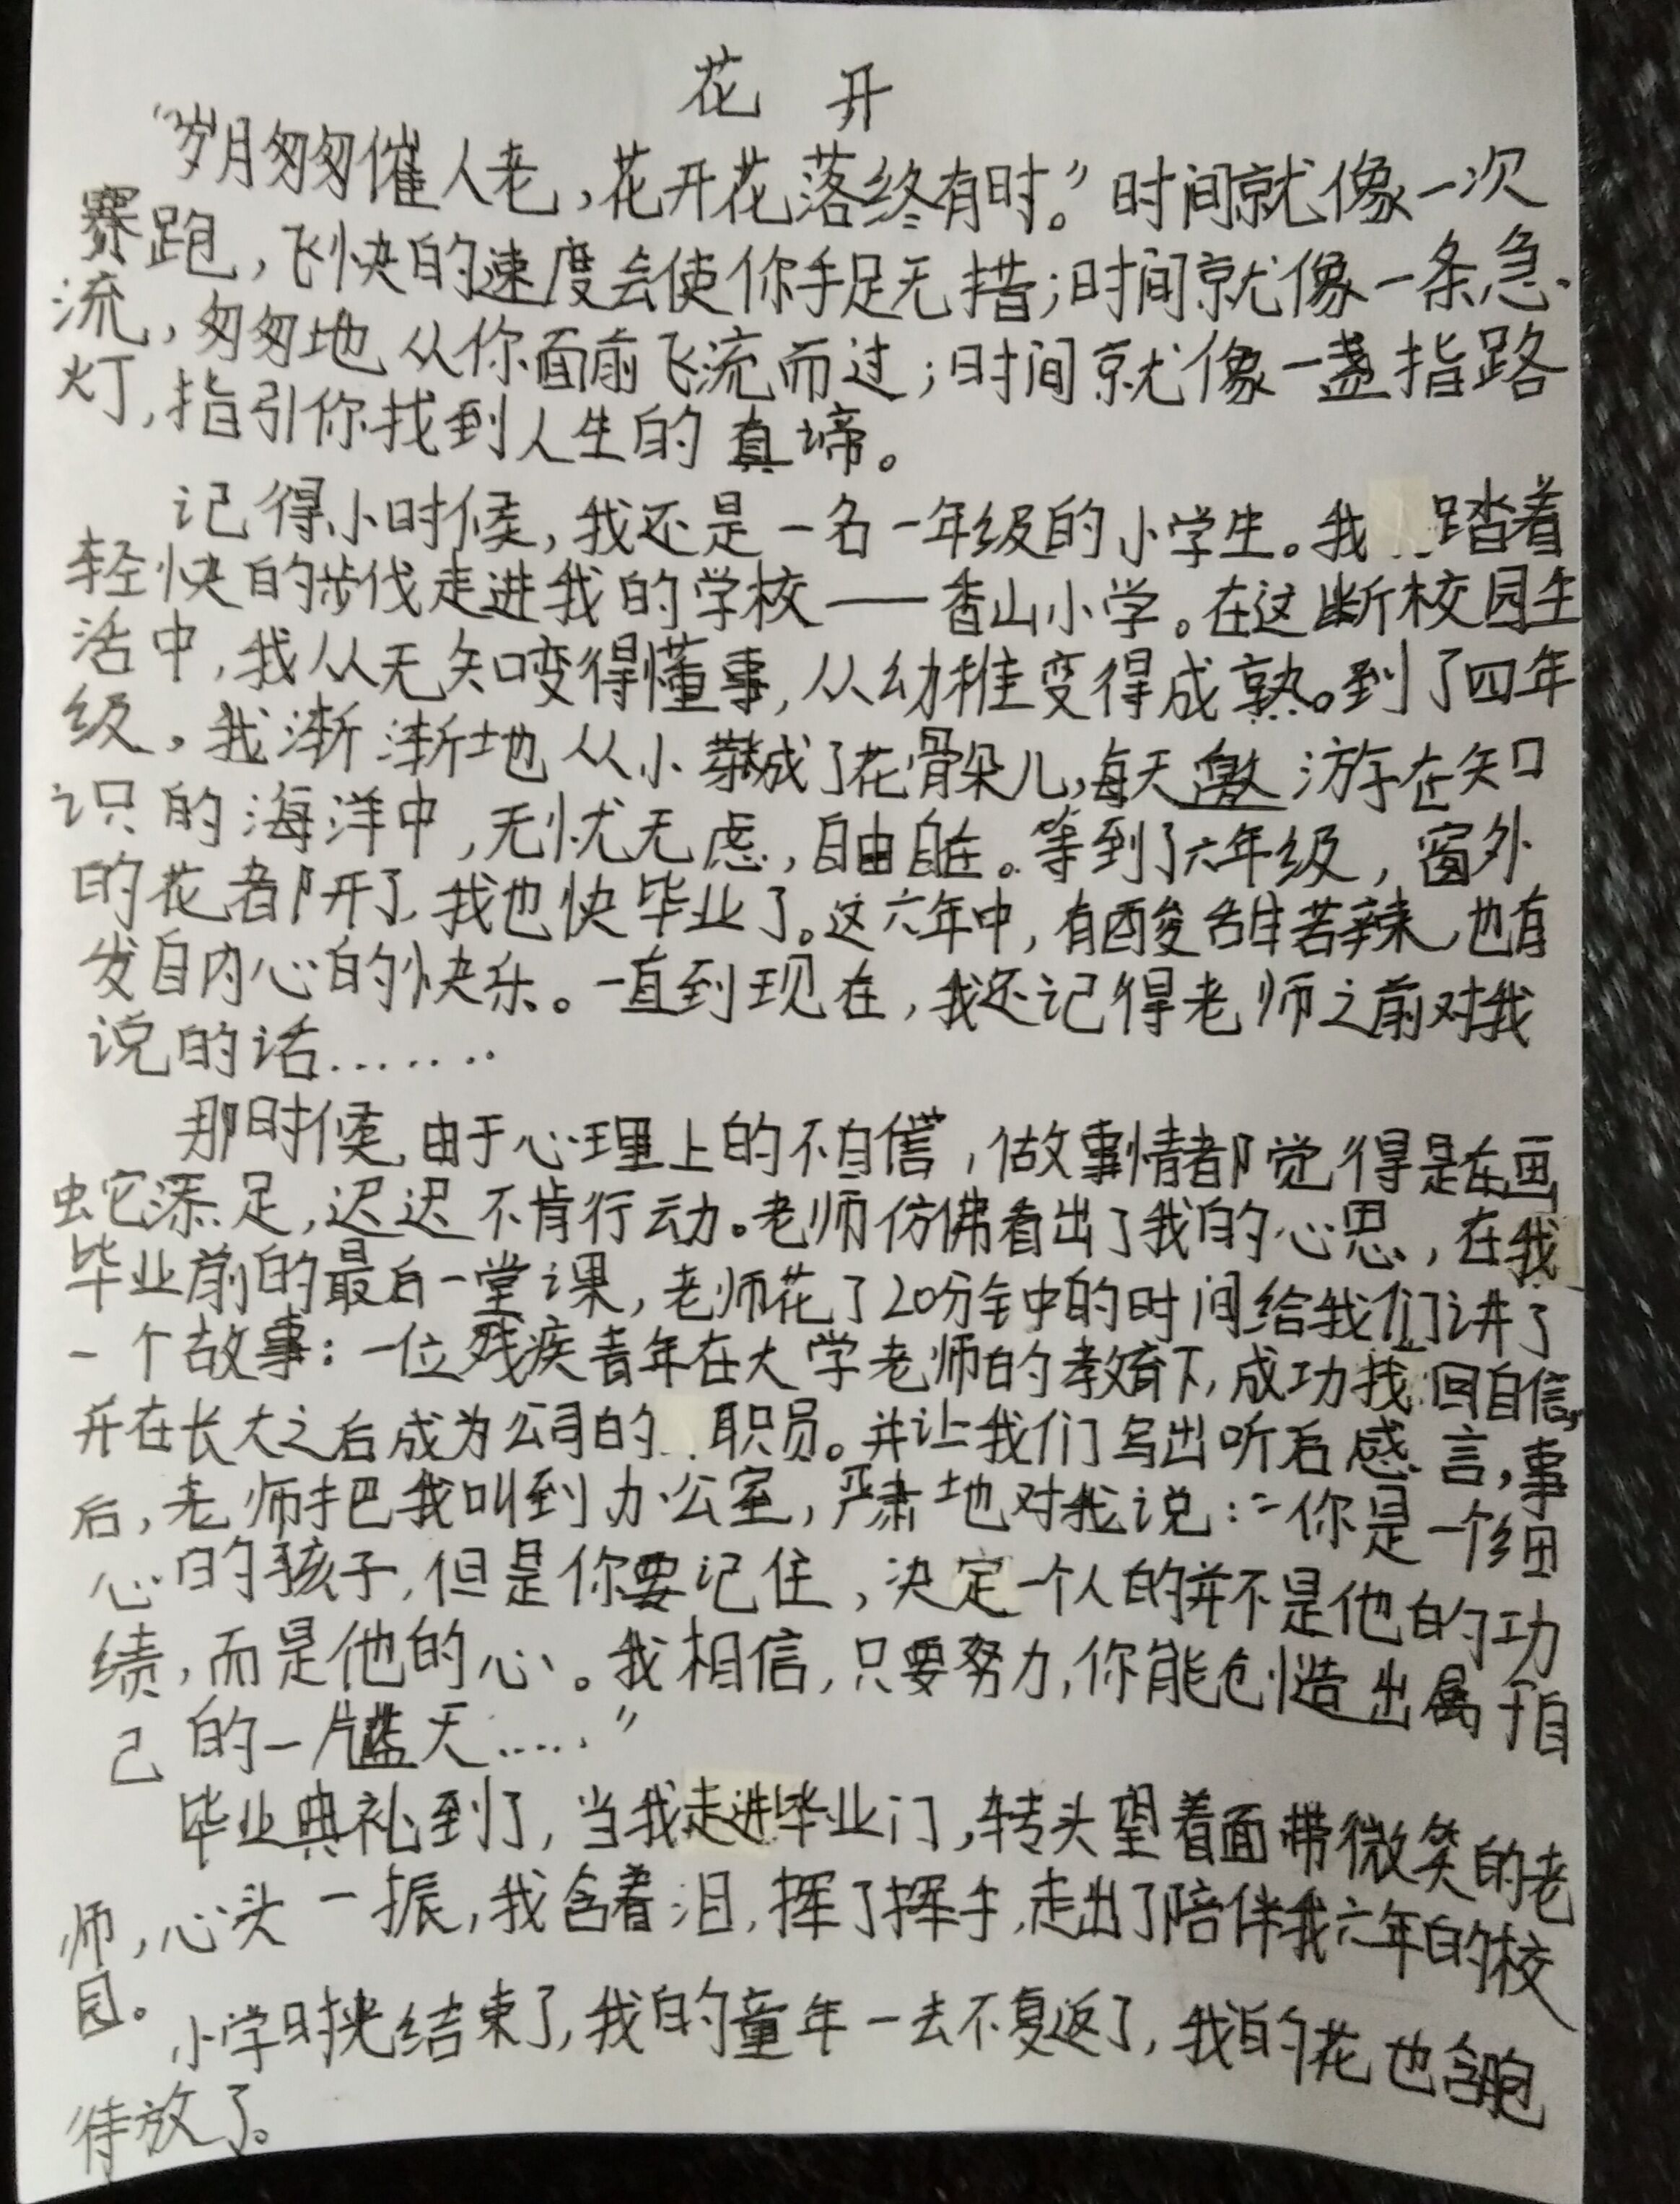 花开
“岁月匆匆催人老,花开花落终有时。”时间就像一次
赛跑,飞快的速度会使你手足无措;时间就像一条急
流,匆匆地从你面前飞流而过;时间就像一盏指路
灯,指引你找到人生的真谛。
记得小时候,我还是一名一年级的小学生。我踏着
轻快的步伐走进我的学校——香山小学。在这断校园生
活中,我从无知变得懂事,从幼稚变得成熟。到了四年
级,我渐渐地从小芽成了花骨朵儿,每天遨游在知
识的海洋中,无忧无虑,自由自在。等到了六年级,窗外
的花都开了,我也快毕业了。这六年中,有酸甜苦辣,也有
发自内心的快乐。一直到现在,我还记得老师之前对我
说的话.......
那时候,由于心理上的不自信,做事情都觉得是在画
蛇添足,迟迟不肯行动。老师仿佛看出了我的心思,在我
毕业前的最后一堂课,老师花了20分钟的时间给我们讲了
一个故事:一位残疾青年在大学老师的教育下,成功找回自信,
并在长大之后成为公司的职员。并让我们写出听后感言,事
后,老师把我叫到办公室,严肃地对我说:“你是一个细
心的孩子,但是你要记住,决定一个人的并不是他的功
绩,而是他的心。我相信,只要努力,你能创造出属于自
己的一片蓝天......”
毕业典礼到了,当我走进毕业门,转头望着面带微笑的老
师,心头一振,我含着泪,挥了挥手,走出了陪伴我六年的校
园。
小学时光结束了,我的童年一去不复返了,我的花也含胞
待放了。